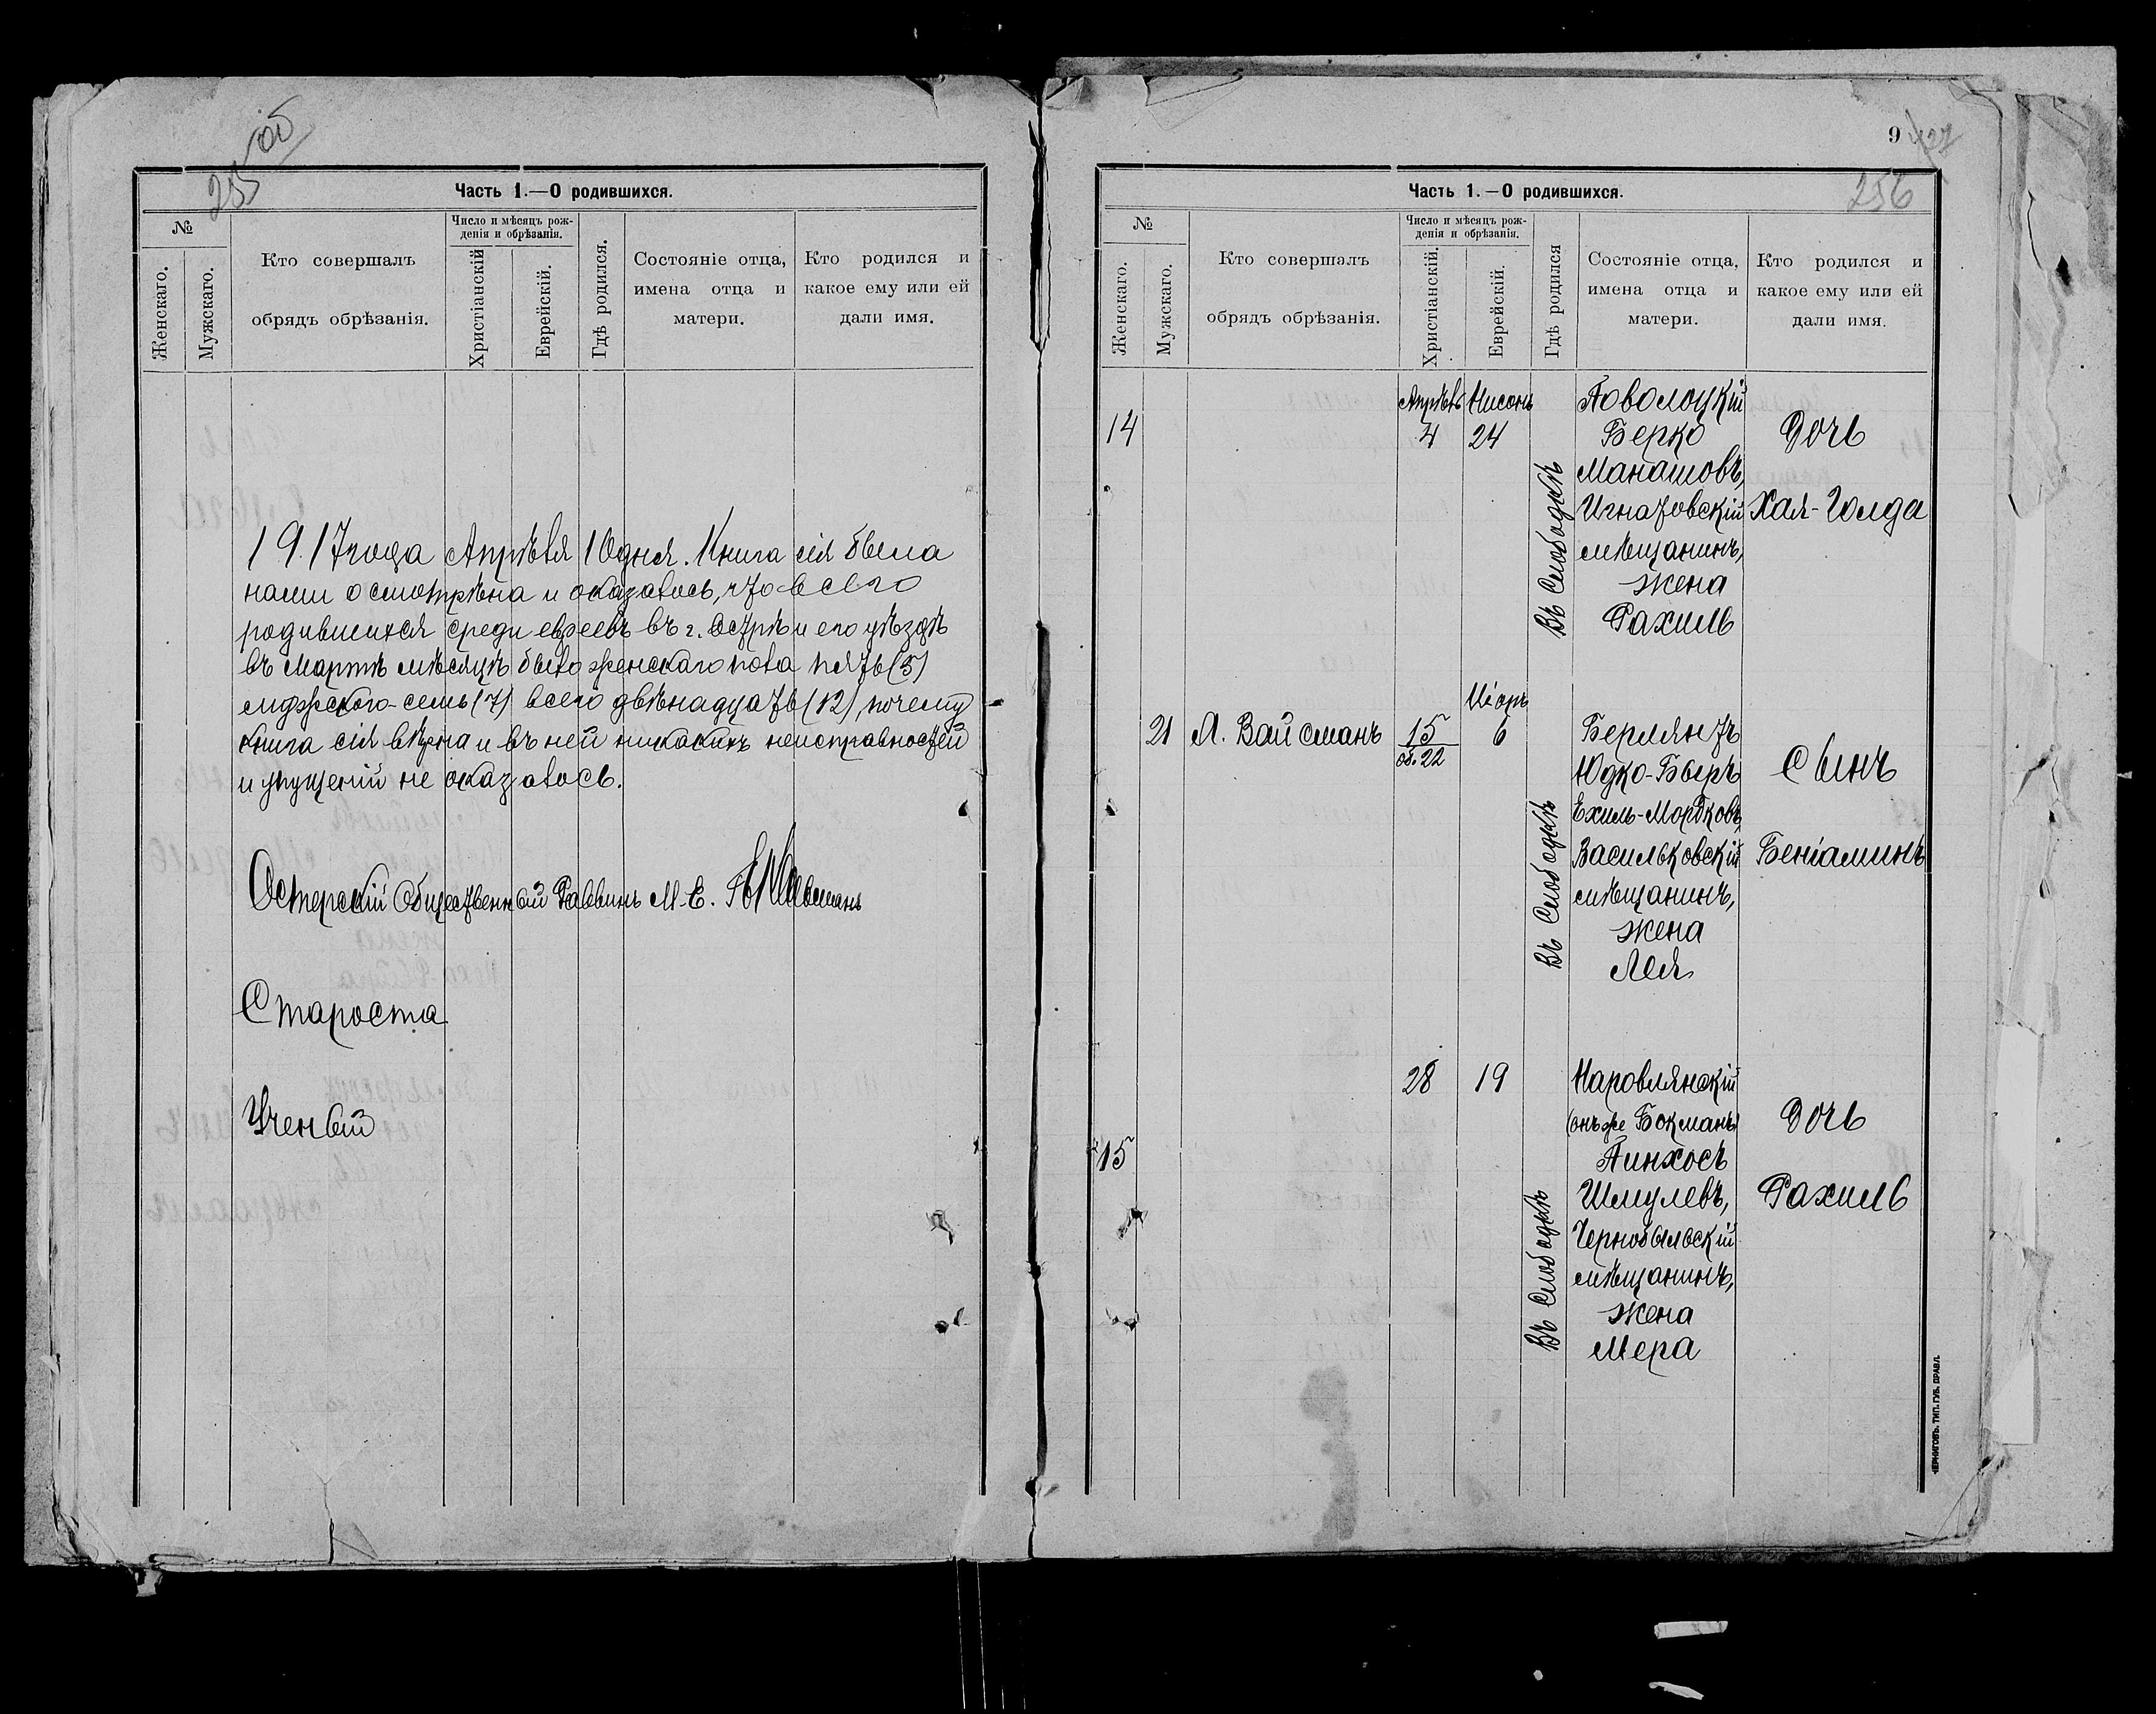 255 об
Часть 1.—О родившихся.
№
Женскаго.
Мужскаго.
Кто совершалъ
обрядъ обрѣзанія.
Число и мѣсяцъ рож-
денія и обрѣзанія.
Христіанскій
Еврейскій.
Гдѣ родился.
Состояніе отца,
имена отца и
матери.
Кто родился и
какое ему или ей
дали имя.
1917 года Апрѣля 10 дня. Книга сія была
нами осмотрѣна и оказалось, что всего
родившихся среди евреевъ въ г. Острѣ и его уѣздѣ
въ Мартѣ мѣсяцѣ было женскаго пола пять (5)
мужского-семь (7) всего двѣнадцать (12), почему
книга сія вѣрна и въ ней никакихъ неисправностей
и упущеній не оказалось.
Остерскій Общественный Раввинъ М.-Е.
Староста
Ученый
9
256
Часть 1.—О родившихся.
№
Женскаго.
Мужскаго.
Кто совершалъ
обрядъ обрѣзанія.
Число и мѣсяцъ рож-
денія и обрѣзанія.
Христіанскій.
Еврейскій.
Гдѣ родился
Состояніе отца,
имена отца и
матери.
Кто родился и
какое ему или ей
дали имя.
Апрѣль Нисонъ Поволоцкій
14 4 24 Берко Дочь
Манашовъ,
Игнатовскій Хая-Голда
мѣщанинъ,
жена
Рахиль
Въ Слободкѣ
Іоръ
21 А. Вайсманъ 15 6 Берлянтъ
об. 22 Юдко-Беръ Сынъ
Ехиль-Мордковъ,
Васильковскій Беніаминъ
мѣщанинъ,
жена
Лея
Въ Слободкѣ
28 19 Наровлянскій
(онъ же Бокманъ) Дочь
15 Пинхосъ
Шмулевъ, Рахиль
Чернобыльскій
мѣщанинъ,
жена
Мера
Въ Слободкѣ
ЧЕРНИГОВЪ. ТИП. ГУБ. ПРАВЛ.